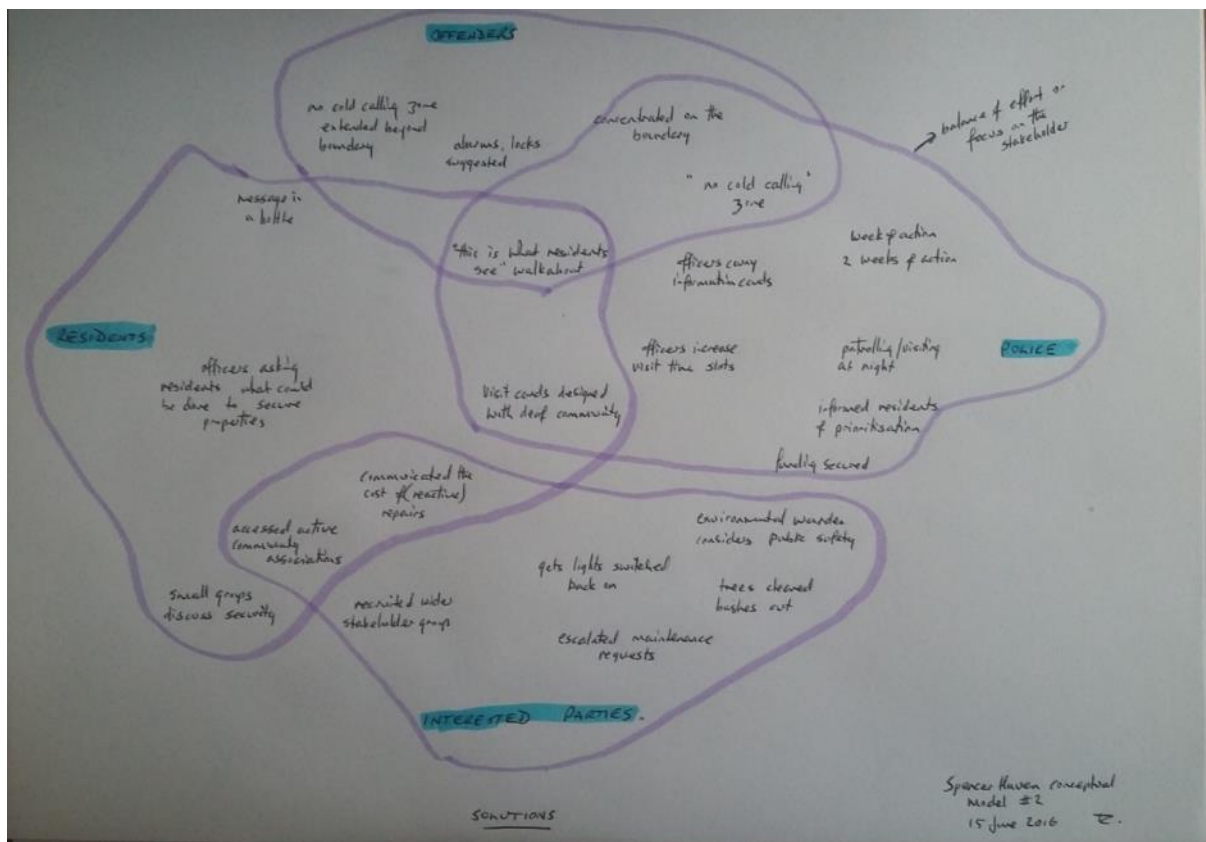 OFFENDERS
no cold calling zone
extended beyond
boundary
alarms, locks
suggested
concentrated on the
boundary
"no cold calling"
zone
balance of effort or
focus on the
stakeholder
message in
a bottle
"this is what residents
see" walkabout
officers carry
information cards
week of action
2 weeks of action
RESIDENTS
officers asking
residents what could
be done to secure
properties
officers increase
visit time slots
patrolling/visiting
at night
POLICE
Visit cards designed
with deaf community
informed residents
of prioritisation
funding secured
communicated the
cost of (reactive)
repairs
accessed active
community
associations
environmental warden
considers public safety
gets lights switched
back on
trees cleared
bushes cut
small groups
discuss security
recruited wider
stakeholder group
escalated maintenance
requests
INTERESTED PARTIES.
SOLUTIONS
Spencer Haven conceptual
model #2
15 June 2016